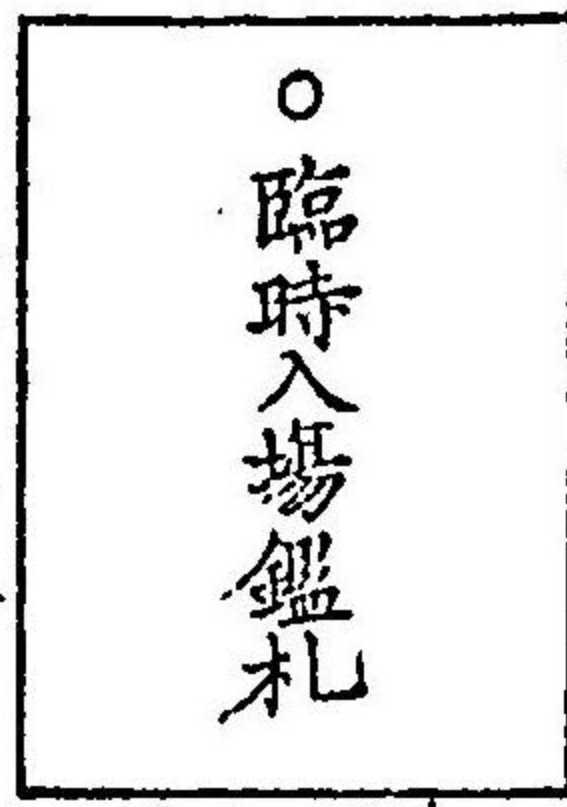 ○臨時入場鑑札